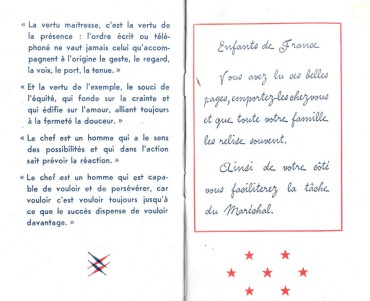 « La vertu maîtresse, c'est la vertu de
la présence : l'ordre écrit ou télé-
phoné ne vaut jamais celui qu'accom-
pagnent à l'origine le geste, le regard,
la voix, le port, la tenue. »
« Et la vertu de l'exemple, le souci de
l'équité, qui fonde sur la crainte et
qui édifie sur l'amour, alliant toujours
à la fermeté la douceur. »
« Le chef est un homme qui a le sens
des possibilités et qui dans l'action
sait prévoir la réaction. »
« Le chef est un homme qui est capa-
ble de vouloir et de persévérer, car
vouloir c'est vouloir toujours jusqu'à
ce que le succès dispense de vouloir
davantage. »
Enfants de France
Vous avez lu ces belles
pages, emportez-les chez vous
et que toute votre famille
les relise souvent.
Ainsi de votre côté
vous faciliterez la tâche
du Maréchal.